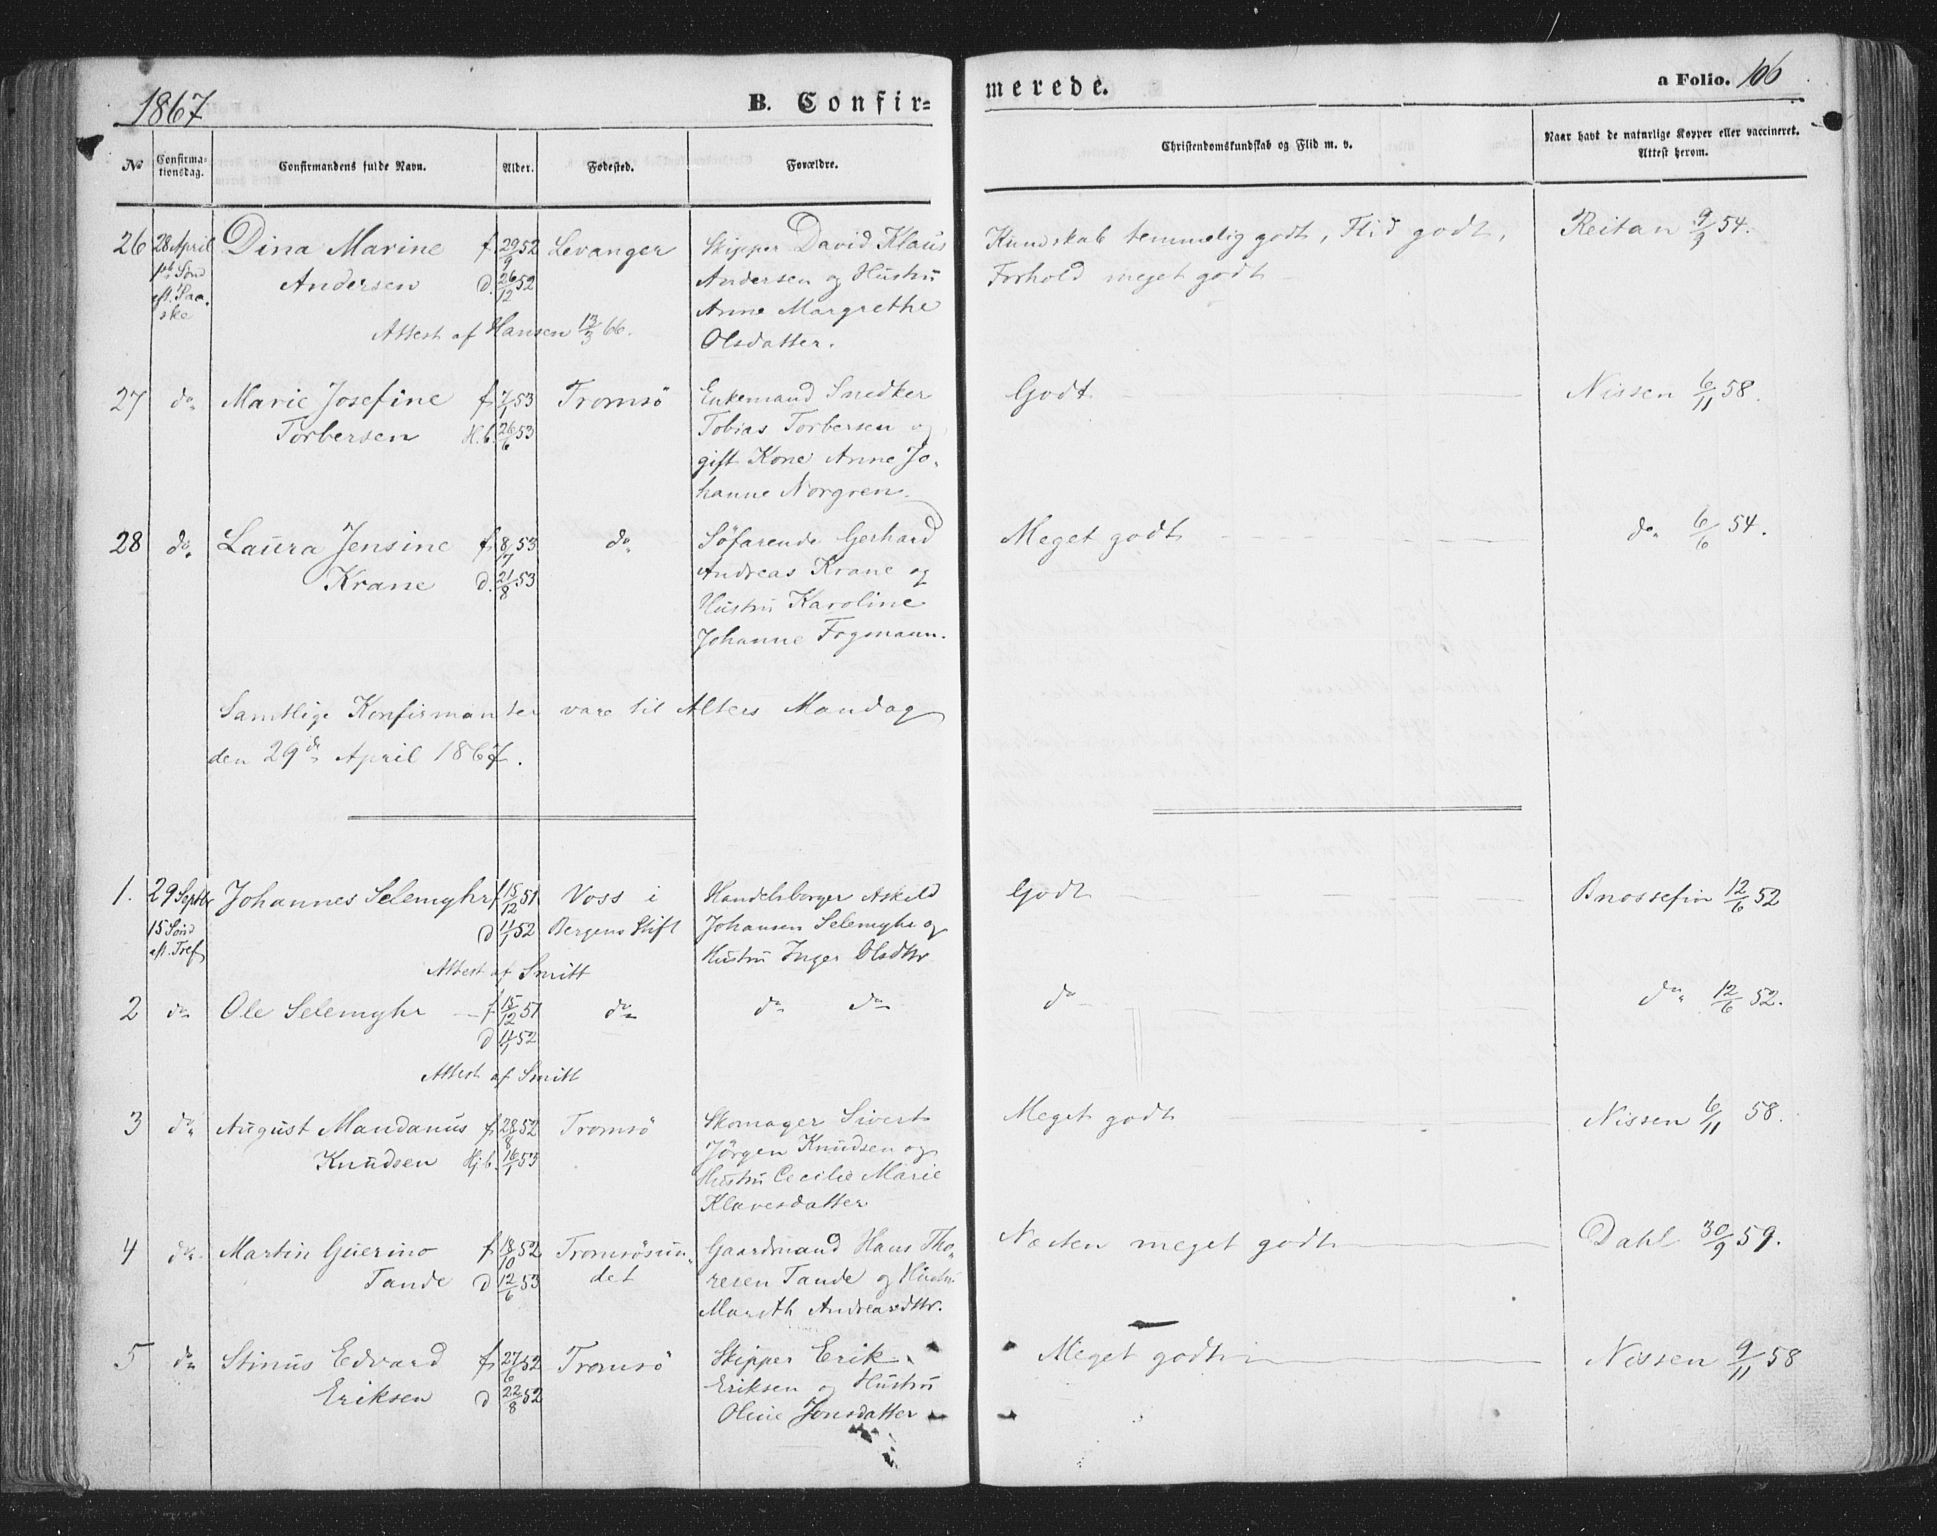 1867
B. Confir=
merede.
a Folio. 106
No
Confirma-
tionsdag.
Confirmandens fulde Navn.
Alder.
Fødested.
Forældre.
Christendomskundskab og Flid m. v.
Naar havt de naturlige Kopper eller vaccineret.
Attest herom.
26 28 April Dina Marine f 29/9 52 Levanger Skipper David Klaus Kundskab temmelig godt, Flid godt, Reitan 9/9 54.
1ste Sønd Andersen d. 26/12 52 Andersen og Hustru Forhold meget godt
eft. Paa-
ske
Anne Margrethe
Attest af Hansen 13/3 66.
Olsdatter.
27 do Marie Josefine f 7/1 53 Tromsö Enkemand Snedker Godt. Nissen 6/11 58.
Torbersen H.b. 26/6 53 Tobias Torbersen og
gift Kone Anne Jo-
hanne Norgren.
28 do Laura Jensine f 8/7 53 do Söfarende Gerhard Meget godt do 6/6 54.
Krane d. 21/8 53 Andreas Krane og
Hustru Karoline
Johanne Fogmann.
Samtlige Konfirmanter vare til Alters Mandag
den 29de April 1867.
1. 29 Septbr Johannes Selemyhr f 15/12 51 Voss i Handelsborger Askild Godt 12/6 52
15 Sønd d 11/1 52 Bergens Stift Johansen Selemyhr og
eft. Tref Hustru Inger Olsdtr
Attest af Smitt
2 do Ole Selemyhr f 15/12 51 do do do do do 12/6 52.
d 11/1 52
Attest af Smitt
3 do August Mandanus f 28/8 52 Tromsö Skomager Sivert Meget godt Nissen 6/11 58.
Knudsen Hj.b. 16/1 53 Jörgen Knudsen og
Hustru Cecilie Marie
Klavesdatter
4 do Martin Guerino f 18/10 52 Tromsösun- Gaardmand Hans Tho- Næsten meget godt Dahl 30/9 59.
Tande d 12/6 53 det resen Tande og Hustru
Mareth Andreasdtr.
5 do Stinus Edvard f 27/6 52 Tromsö Skipper Erik Meget godt Nissen 9/11 58
Eriksen d 22/8 52 Eriksen og Hustru
Oline Jonsdatter